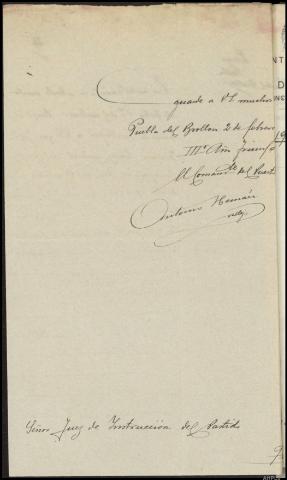 guarde a V.S. muchos
Puebla del Brollon 2 de febrero
III.º Año Triunfal
El Comand.te del Puesto
Antonio Hernán
dez
Señor Juez de Instrucción del Partido